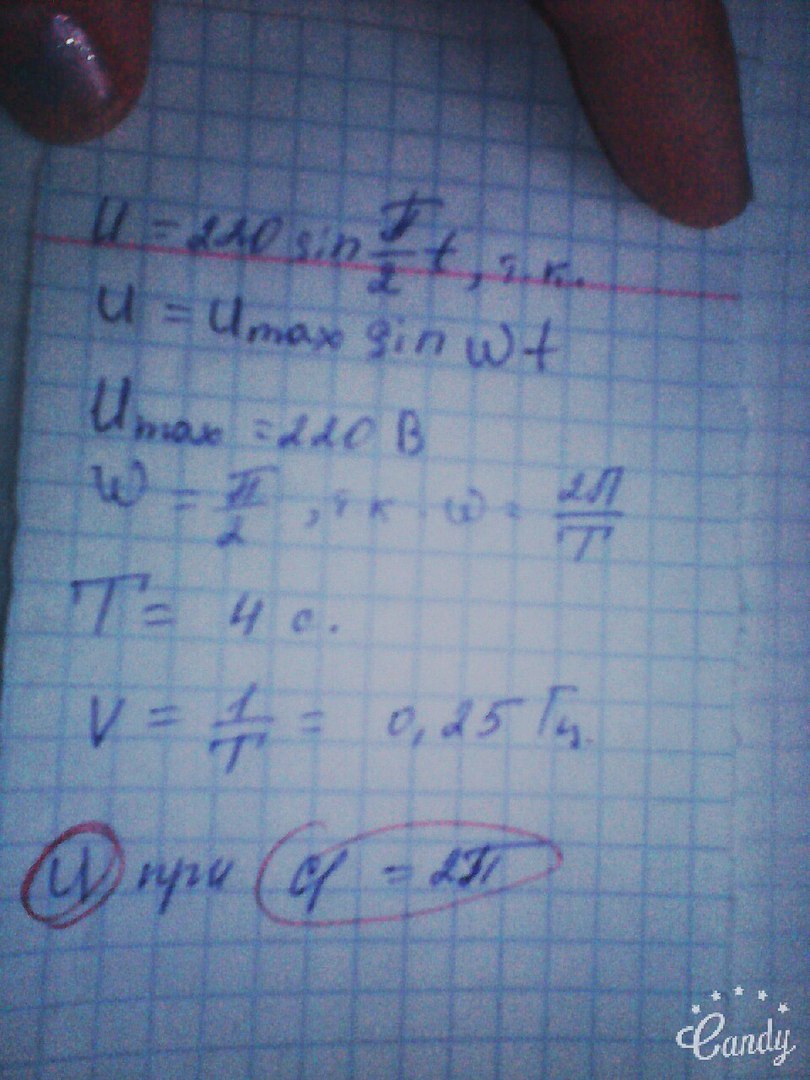 U = 220 sin π/2 t, т.к.
U = Umax sin ωt
Umax = 220 В
ω = π/2, т.к. ω = 2π/T
T = 4 с.
ν = 1/T = 0,25 Гц.
U при φ = 2π
Candy